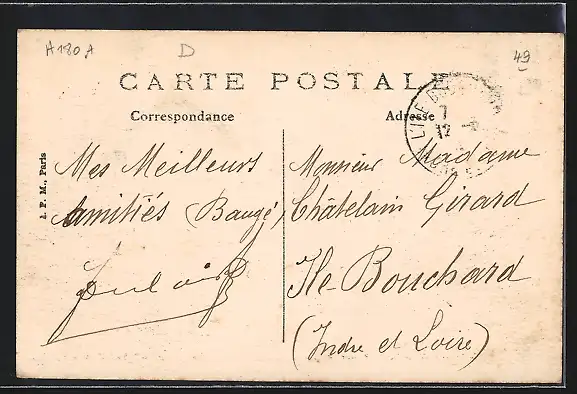 A180A
D
49
CARTE POSTALE
Correspondance
Adresse
L'ILE B
7
12
I. P. M., Paris
Mes Meilleurs
Amitiés (Baugé)
Monsieur Madame
Châtelain Girard
Ile-Bouchard
(Indre et Loire)